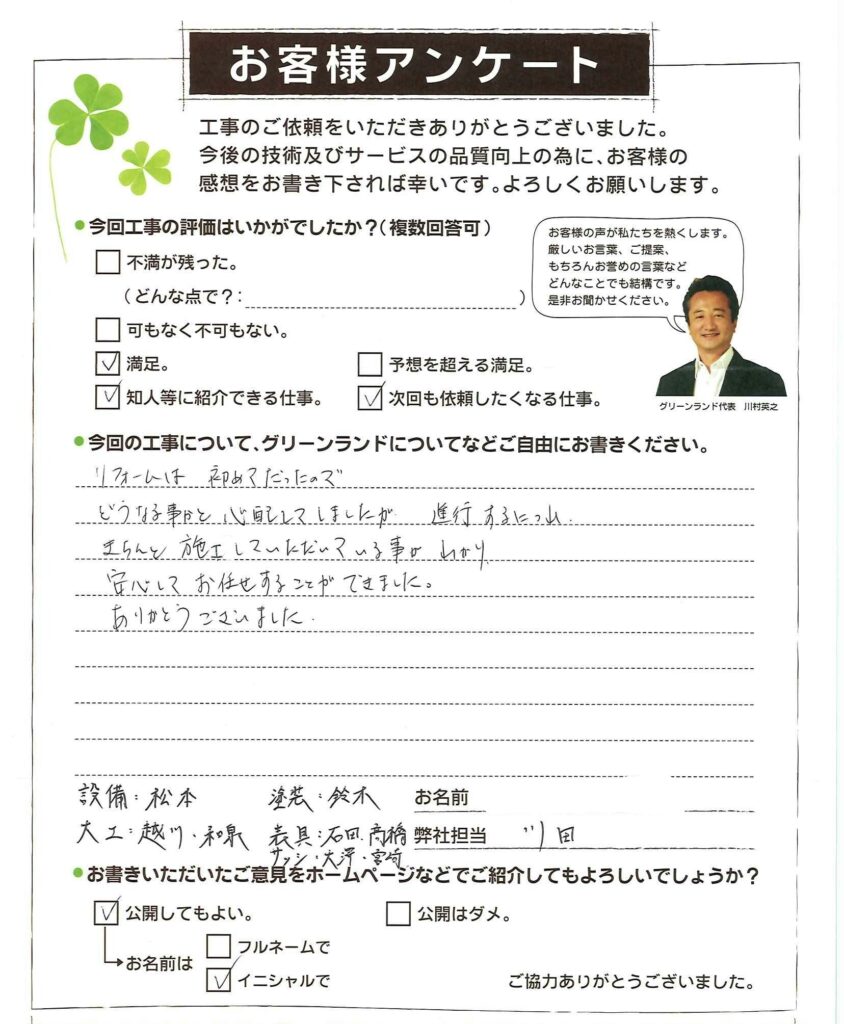 お客様アンケート
工事のご依頼をいただきありがとうございました。
今後の技術及びサービスの品質向上の為に、お客様の
感想をお書き下されば幸いです。よろしくお願いします。
今回工事の評価はいかがでしたか?(複数回答可)
不満が残った。
(どんな点で?: )
可もなく不可もない。
満足。
予想を超える満足。
知人等に紹介できる仕事。
次回も依頼したくなる仕事。
お客様の声が私たちを熱くします。
厳しいお言葉、ご提案、
もちろんお誉めの言葉など
どんなことでも結構です。
是非お聞かせください。
グリーンランド代表 川村英之
今回の工事について、グリーンランドについてなどご自由にお書きください。
リフォームは 初めてだったので
どうなる事かと 心配してしましたが 進行するにつれ.
きちんと 施工していただいている事が わかり
安心して お任せすることが できました。
ありがとうございました.
設備:松本 塗装:鈴木 お名前
大工:越川・和泉 表具:石田.高橋 弊社担当 川田
サッシ・大澤・宮崎
お書きいただいたご意見をホームページなどでご紹介してもよろしいでしょうか?
公開してもよい。
公開はダメ。
お名前は
フルネームで
イニシャルで
ご協力ありがとうございました。